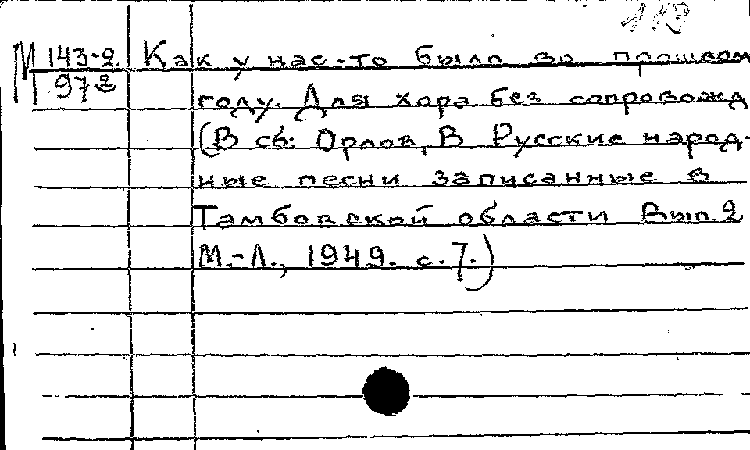 М 143-2 Как у нас-то было во прошлом
973 году. Для хора без сопровожд
(В сб: Орлов, В Русские народ-
ные песни записанные в
Тамбовской области Вып. 2
М.-Л., 1949. с. 7.)